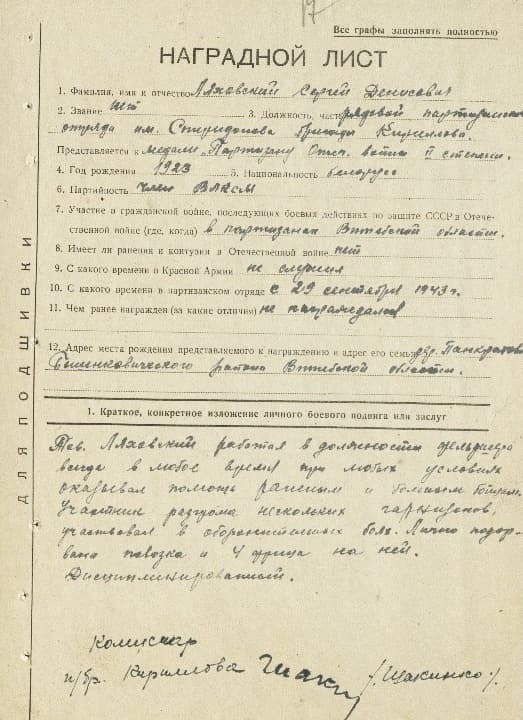 17
Все графы заполнять полностью
НАГРАДНОЙ ЛИСТ
1. Фамилия, имя и отчество Ляховский Сергей Денисович
2. Звание нет 3. Должность, часть рядовой партизанского
отряда им. Спиридонова бригады Кириллова
Представляется к медали „Партизану Отеч. войны" II степени.
4. Год рождения 1923 5. Национальность белорус
6. Партийность член ВЛКСМ
7. Участие в гражданской войне, последующих боевых действиях по защите СССР и Отече-
ственной войне (где, когда) в партизанах Витебской области.
8. Имеет ли ранения и контузии в Отечественной войне нет
9. С какого времени в Красной Армии не служил
10. С какого времени в партизанском отряде с 29 сентября 1943 г.
11. Чем ранее награжден (за какие отличия) не награждался
12. Адрес места рождения представляемого к награждению и адрес его семьи дер.
Бешенковического района Витебской области.
1. Краткое, конкретное изложение личного боевого подвига или заслуг
Тов. Ляховский работал в должности фельдшера
всегда в любое время при любых условиях
оказывал помощь раненым и больным
Участник разгрома нескольких гарнизонов,
участвовал в оборонительных боях. Лично подор-
вана повозка и 4 фрица на ней.
Дисциплинированный.
Комиссар
п/бр. Кириллова
ДЛЯ ПОДШИВКИ